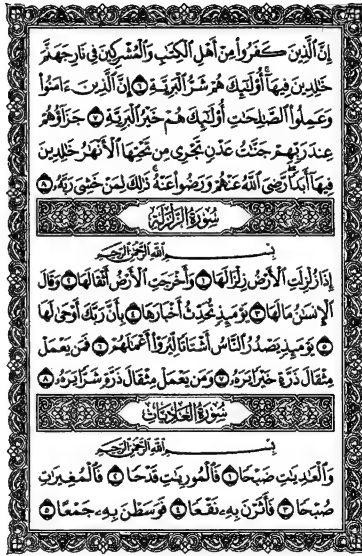 إِنَّ الَّذِينَ كَفَرُوا مِنْ أَهْلِ الْكِتَابِ وَالْمُشْرِكِينَ فِي نَارِ جَهَنَّمَ
خَالِدِينَ فِيهَا أُولَٰئِكَ هُمْ شَرُّ الْبَرِيَّةِ ٦ إِنَّ الَّذِينَ ءَامَنُوا
وَعَمِلُوا الصَّالِحَاتِ أُولَٰئِكَ هُمْ خَيْرُ الْبَرِيَّةِ ٧ جَزَاؤُهُمْ
عِندَ رَبِّهِمْ جَنَّٰتُ عَدْنٍ تَجْرِي مِن تَحْتِهَا الْأَنْهَٰرُ خَالِدِينَ
فِيهَا أَبَدًا رَّضِيَ اللَّهُ عَنْهُمْ وَرَضُوا عَنْهُ ذَٰلِكَ لِمَنْ خَشِيَ رَبَّهُ ٨
سُورَةُ الزَّلْزَلَةِ
بِسْمِ اللَّهِ الرَّحْمَٰنِ الرَّحِيمِ
إِذَا زُلْزِلَتِ الْأَرْضُ زِلْزَالَهَا ١ وَأَخْرَجَتِ الْأَرْضُ أَثْقَالَهَا ٢ وَقَالَ
الْإِنسَٰنُ مَا لَهَا ٣ يَوْمَئِذٍ تُحَدِّثُ أَخْبَارَهَا ٤ بِأَنَّ رَبَّكَ أَوْحَىٰ لَهَا
٥ يَوْمَئِذٍ يَصْدُرُ النَّاسُ أَشْتَاتًا لِّيُرَوْا أَعْمَٰلَهُمْ ٦ فَمَن يَعْمَلْ
مِثْقَالَ ذَرَّةٍ خَيْرًا يَرَهُ ٧ وَمَن يَعْمَلْ مِثْقَالَ ذَرَّةٍ شَرًّا يَرَهُ ٨
سُورَةُ الْعَادِيَاتِ
بِسْمِ اللَّهِ الرَّحْمَٰنِ الرَّحِيمِ
وَالْعَٰدِيَٰتِ ضَبْحًا ١ فَالْمُورِيَٰتِ قَدْحًا ٢ فَالْمُغِيرَٰتِ
صُبْحًا ٣ فَأَثَرْنَ بِهِ نَقْعًا ٤ فَوَسَطْنَ بِهِ جَمْعًا ٥